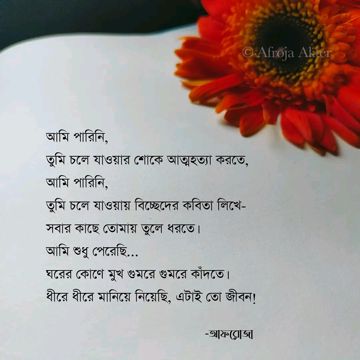 © Afroja Akter
আমি পারিনি,
তুমি চলে যাওয়ার শোকে আত্মহত্যা করতে,
আমি পারিনি,
তুমি চলে যাওয়ায় বিচ্ছেদের কবিতা লিখে-
সবার কাছে তোমায় তুলে ধরতে।
আমি শুধু পেরেছি...
ঘরের কোণে মুখ গুমরে গুমরে কাঁদতে।
ধীরে ধীরে মানিয়ে নিয়েছি, এটাই তো জীবন!
-আফরোজা